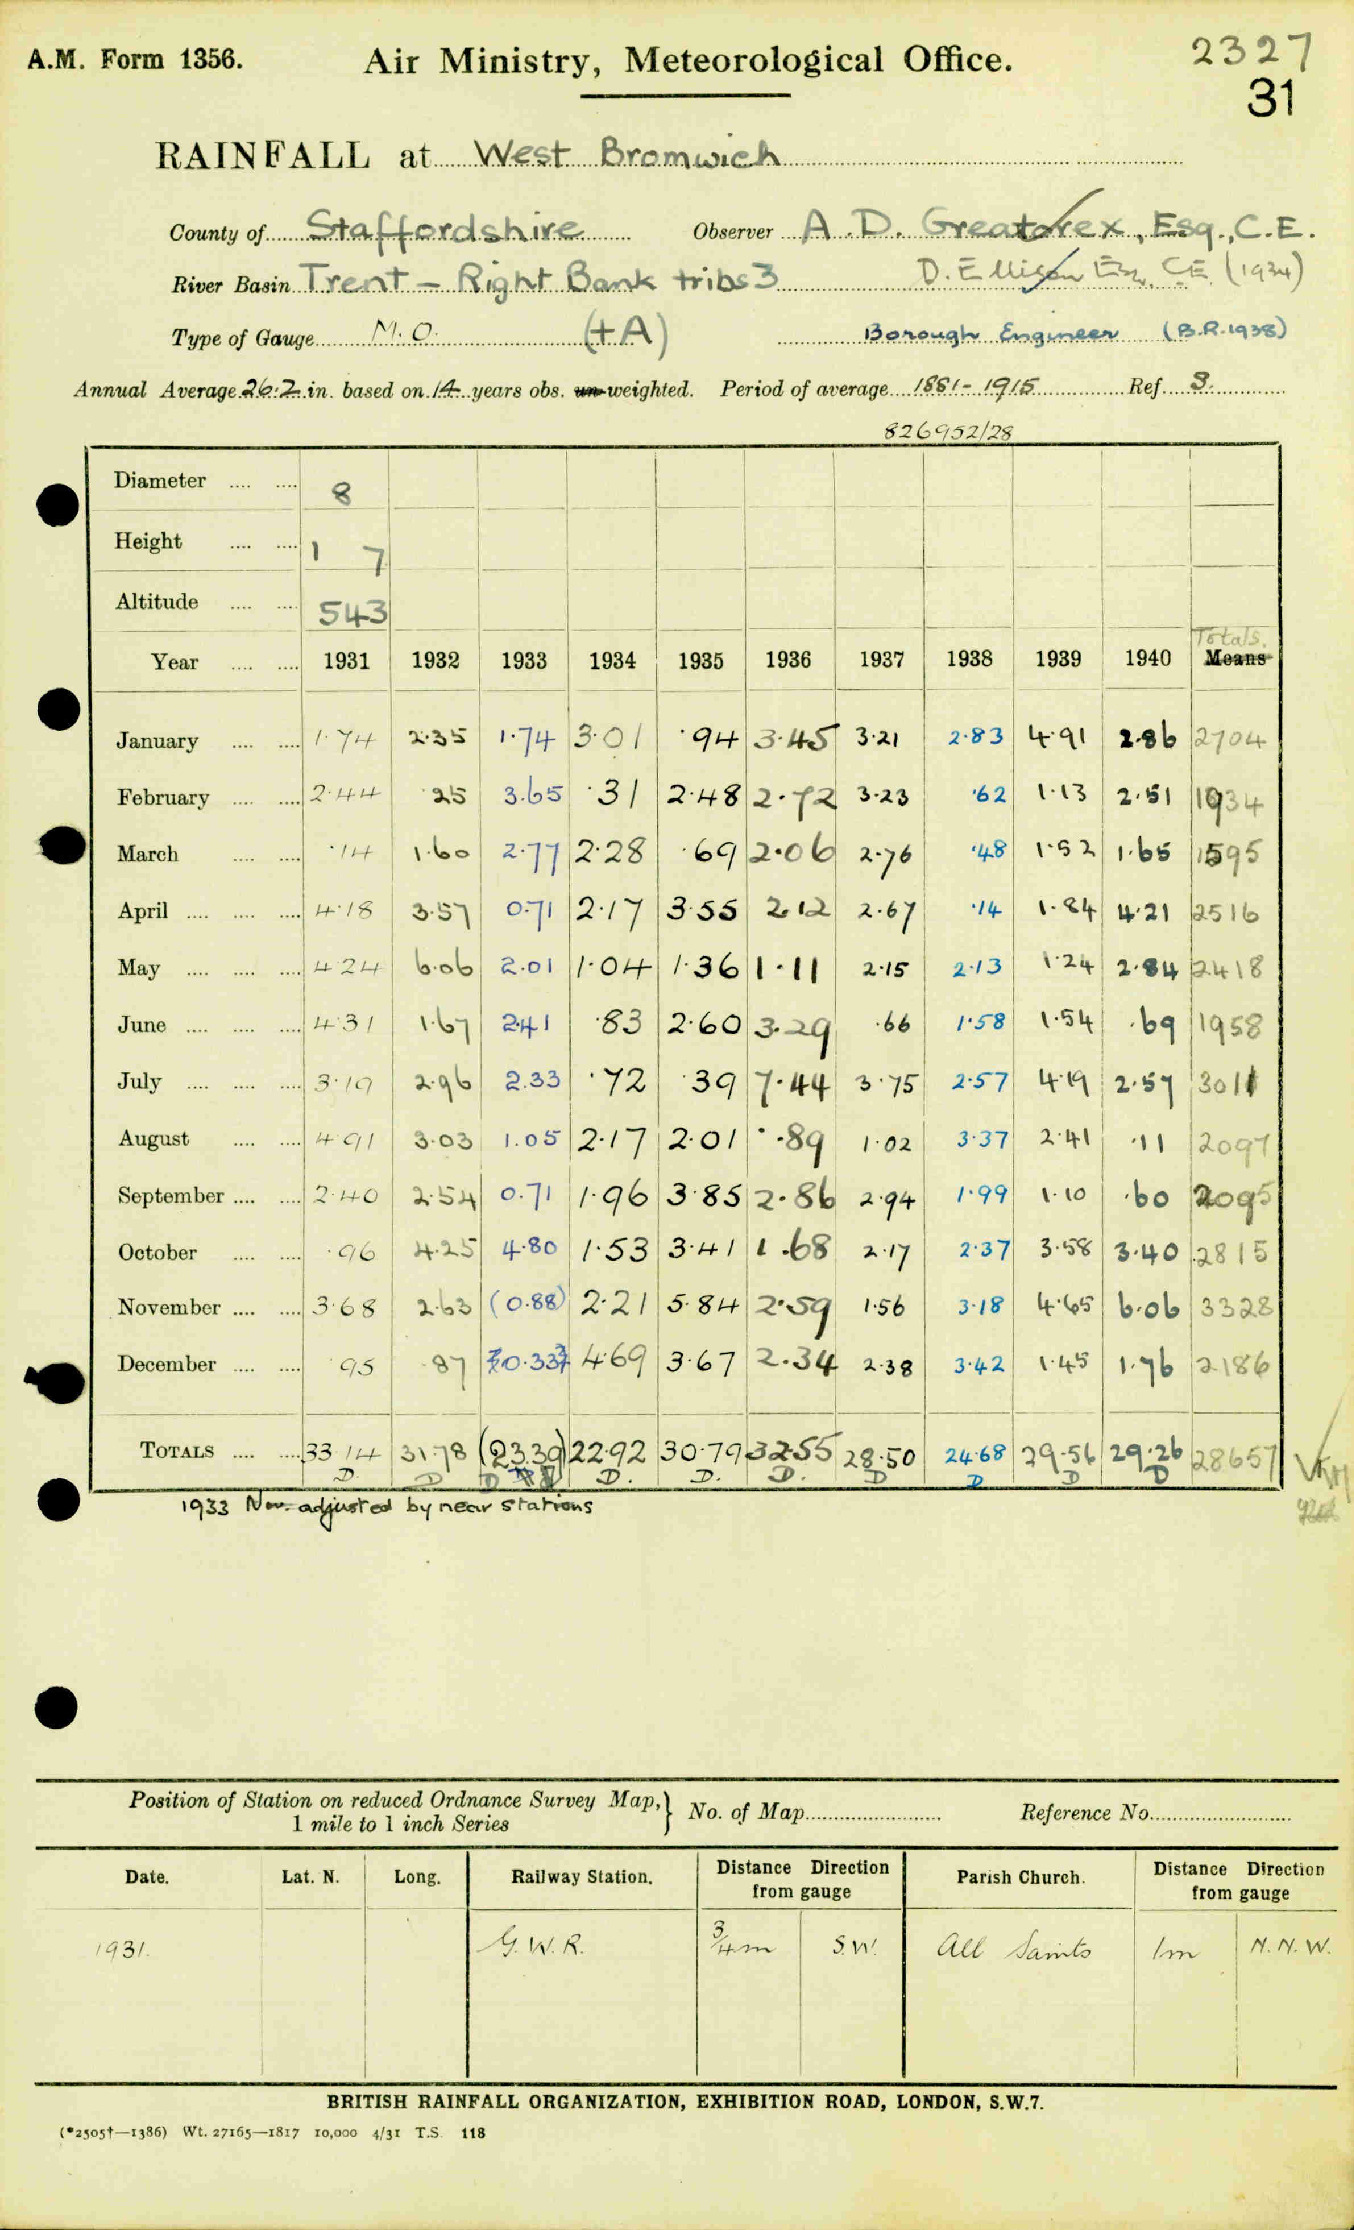 A.M. Form 1356.
Air Ministry, Meteorological Office.
2327
31
RAINFALL at West Bromwich
County of Staffordshire Observer A. D. Greatorex, Esq., C.E.
River Basin Trent – Right Bank tribs 3 D. Ellison Esq. C.E. (1934)
Type of Gauge M.O. (+A) Borough Engineer (B.R. 1938)
Annual Average 26.2 in. based on 14 years obs. un-weighted. Period of average 1881-1915 Ref. S.
826952/28
Diameter 8
Height 1 7
Altitude 543
Totals.
Year 1931 1932 1933 1934 1935 1936 1937 1938 1939 1940 Means
January 1.74 2.35 1.74 3.01 .94 3.45 3.21 2.83 4.91 2.86 2704
February 2.44 .25 3.65 .31 2.48 2.72 3.23 .62 1.13 2.51 1934
March .14 1.60 2.77 2.28 .69 2.06 2.76 .48 1.52 1.65 1595
April 4.18 3.57 0.71 2.17 3.55 2.12 2.67 .14 1.84 4.21 2516
May 4.24 6.06 2.01 1.04 1.36 1.11 2.15 2.13 1.24 2.84 2418
June 4.31 1.67 2.41 .83 2.60 3.29 .66 1.58 1.54 .69 1958
July 3.19 2.96 2.33 .72 .39 7.44 3.75 2.57 4.19 2.57 3011
August 4.91 3.03 1.05 2.17 2.01 .89 1.02 3.37 2.41 .11 2097
September 2.40 2.54 0.71 1.96 3.85 2.86 2.94 1.99 1.10 .60 2095
October .96 4.25 4.80 1.53 3.41 1.68 2.17 2.37 3.58 3.40 2815
November 3.68 2.63 (0.88) 2.21 5.84 2.59 1.56 3.18 4.65 6.06 3328
December .95 .87 0.33 4.69 3.67 2.34 2.38 3.42 1.45 1.76 2186
TOTALS 33.14 31.78 (23.39) 22.92 30.79 32.55 28.50 24.68 29.56 29.26 28657
D D D D. D. D. D D D D
1933 Nov. adjusted by near stations
Position of Station on reduced Ordnance Survey Map,
1 mile to 1 inch Series
No. of Map Reference No.
Date. Lat. N. Long. Railway Station. Distance Direction from gauge Parish Church. Distance Direction from gauge
1931. G.W.R. 3/4m S.W. All Saints 1m N.N.W.
BRITISH RAINFALL ORGANIZATION, EXHIBITION ROAD, LONDON, S.W.7.
(*2505†—1386) Wt. 27165—1817 10,000 4/31 T.S. 118